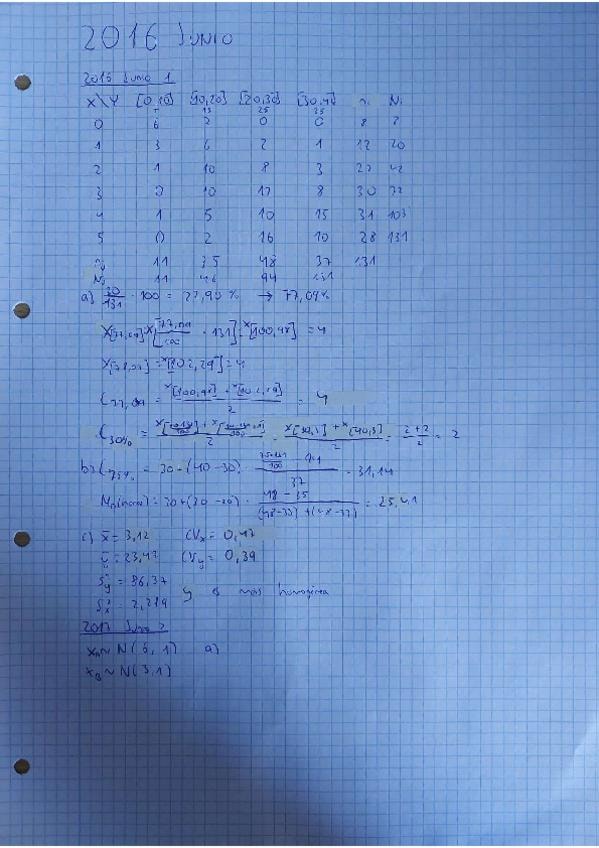 2016 Junio
2016 Junio 1
X\Y [0,10] [10,20] [20,30] [30,40] ni Ni
5 15 25 35
0 6 2 0 0 8 8
1 3 6 2 1 12 20
2 1 10 8 3 22 42
3 0 10 12 8 30 72
4 1 5 10 15 31 103
5 0 2 16 10 28 131
nj 11 35 48 37 131
Nj 11 46 94 131
a) 30/131 · 100 = 22,90 % → 77,09%
X[77,09] = X[77,09/100 · 131] = X[100,98] = 4
= X[102,29] = 4
C77,09 = (X[100,98] + X[102,29])/2 = 4
C30% = = (X[39,3] + X[40,3])/2 = (2+2)/2 = 2
b) C75% = 30 + (40-30) · (75·131/100 - 94)/37 = 31,14
Mo(moda) = 30 + (30-20) · (48-35)/((48-35)+(48-37)) = 25,41
c) x̄ = 3,12 CVx = 0,47
ȳ = 23,47 CVy = 0,39
S²y = 86,37
S²x = 2,219 y es más homogénea
2017 Junio 2
XA ~ N(6, 1) a)
XB ~ N(3,1)